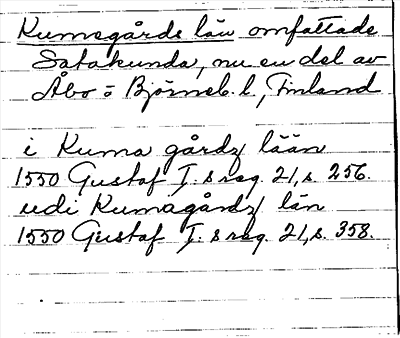 Kumogårds län omfattade
Satakunda, nu en del av
Åbo o Björneb. l, Finland
i Kuma gårdz lään
1550 Gustaf I:s reg. 21, s. 256.
udi Kumagårdz län
1550 Gustaf I:s reg. 21, s. 358.